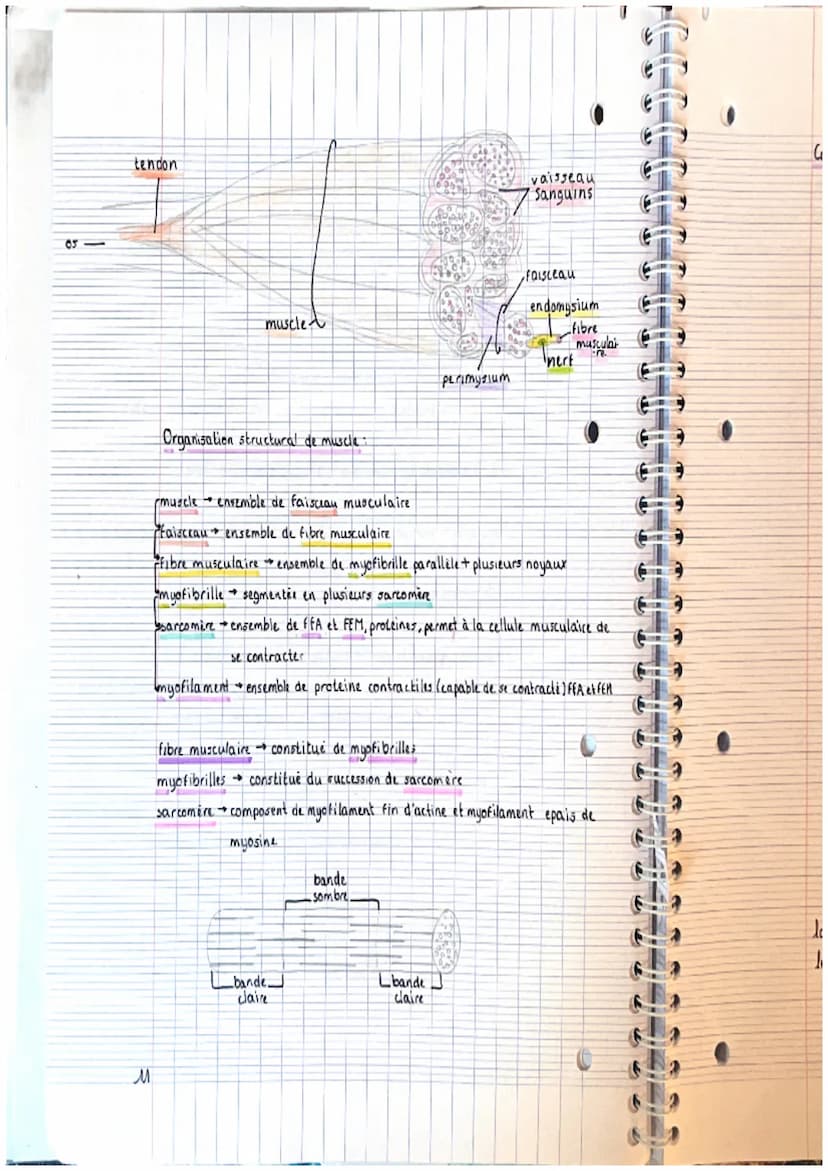 tendon
os
vaisseau
sanguins
faisceau
endomysium
fibre
musculai
-re.
nerf
muscle
perimysium
Organisation structural de muscle :
muscle → ensemble de faisceau musculaire
faisceau → ensemble de fibre musculaire
fibre musculaire → ensemble de myofibrille parallèle + plusieurs noyaux
myofibrille → segmentée en plusieurs sarcomère
sarcomère → ensemble de FFA et FEM, protéines, permet à la cellule musculaire de
se contracter
myofilament → ensemble de proteine contractiles (capable de se contracté) FFA et FEM
fibre musculaire → constitué de myofibrilles
myofibrilles → constitué du succession de sarcomère
sarcomère → composent de myofilament fin d'actine et myofilament epais de
myosine
bande
sombre
bande
claire
bande
claire